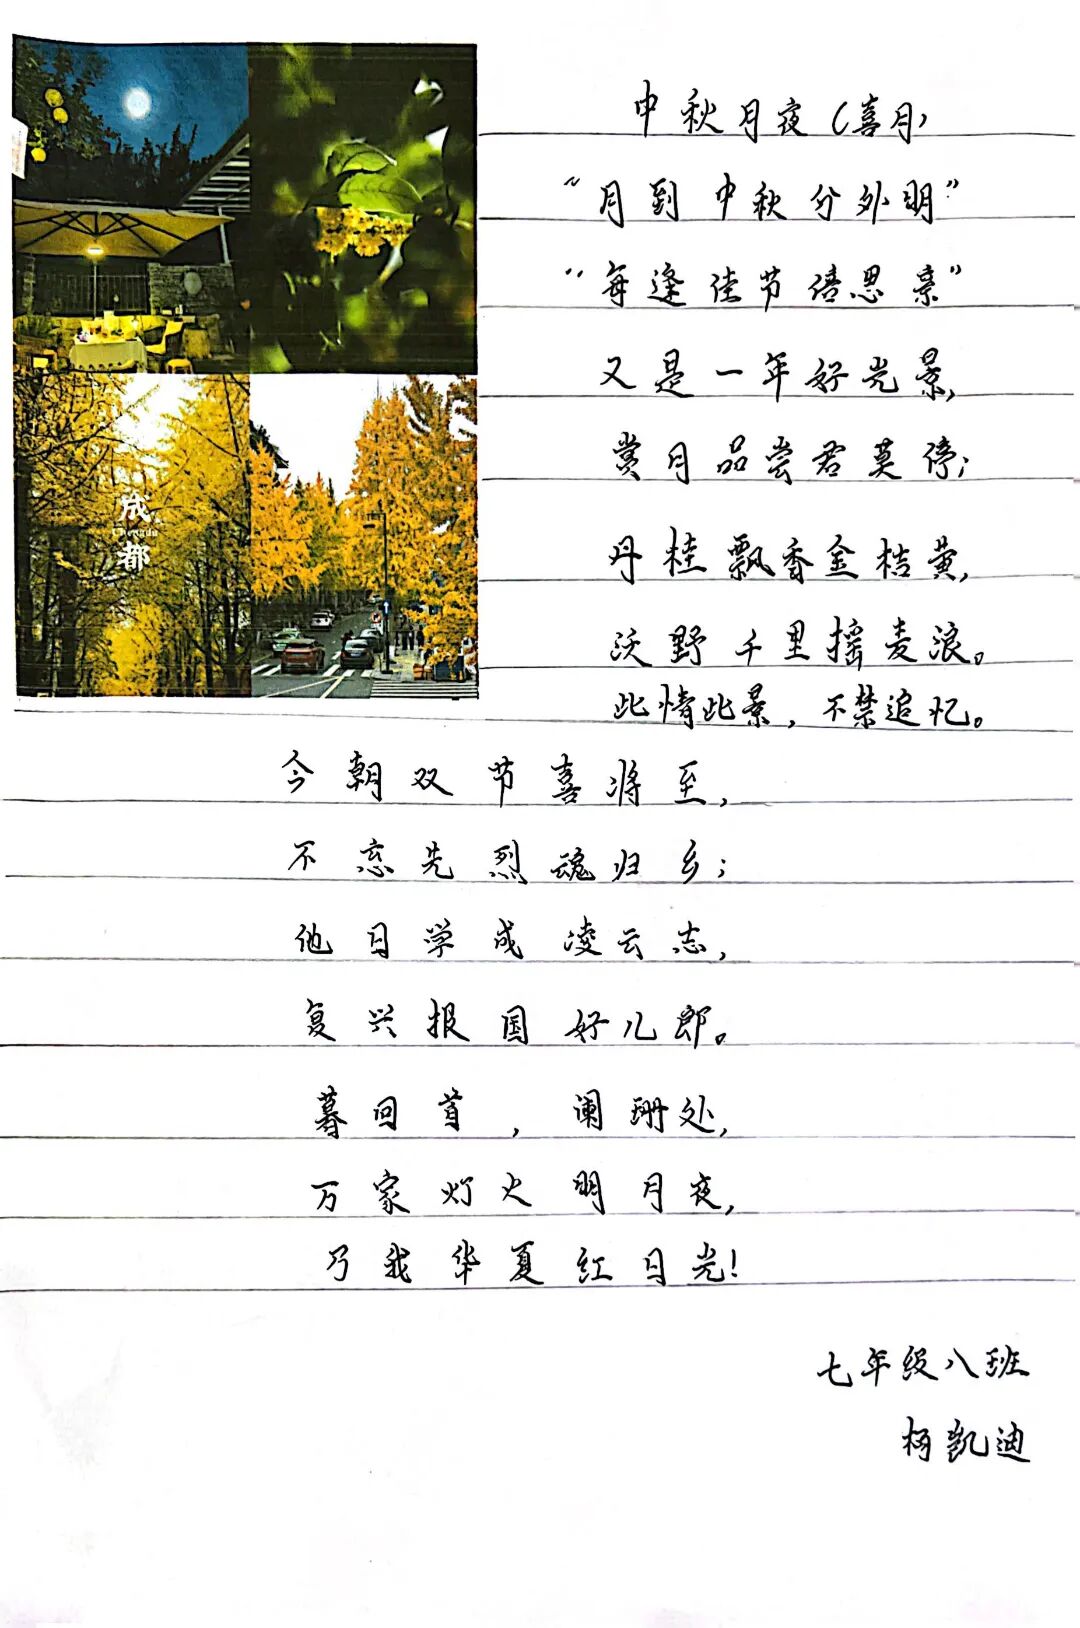 成
Chengdu
都
中秋月夜（喜月）
“月到中秋分外明”
“每逢佳节倍思亲”
又是一年好光景,
赏月品尝君莫停;
丹桂飘香金桔黄,
沃野千里摇麦浪。
此情此景，不禁追忆。
今朝双节喜将至,
不忘先烈魂归乡;
他日学成凌云志,
复兴报国好儿郎。
暮回首，阑珊处,
万家灯火明月夜,
乃我华夏红日光!
七年级八班
杨凯迪